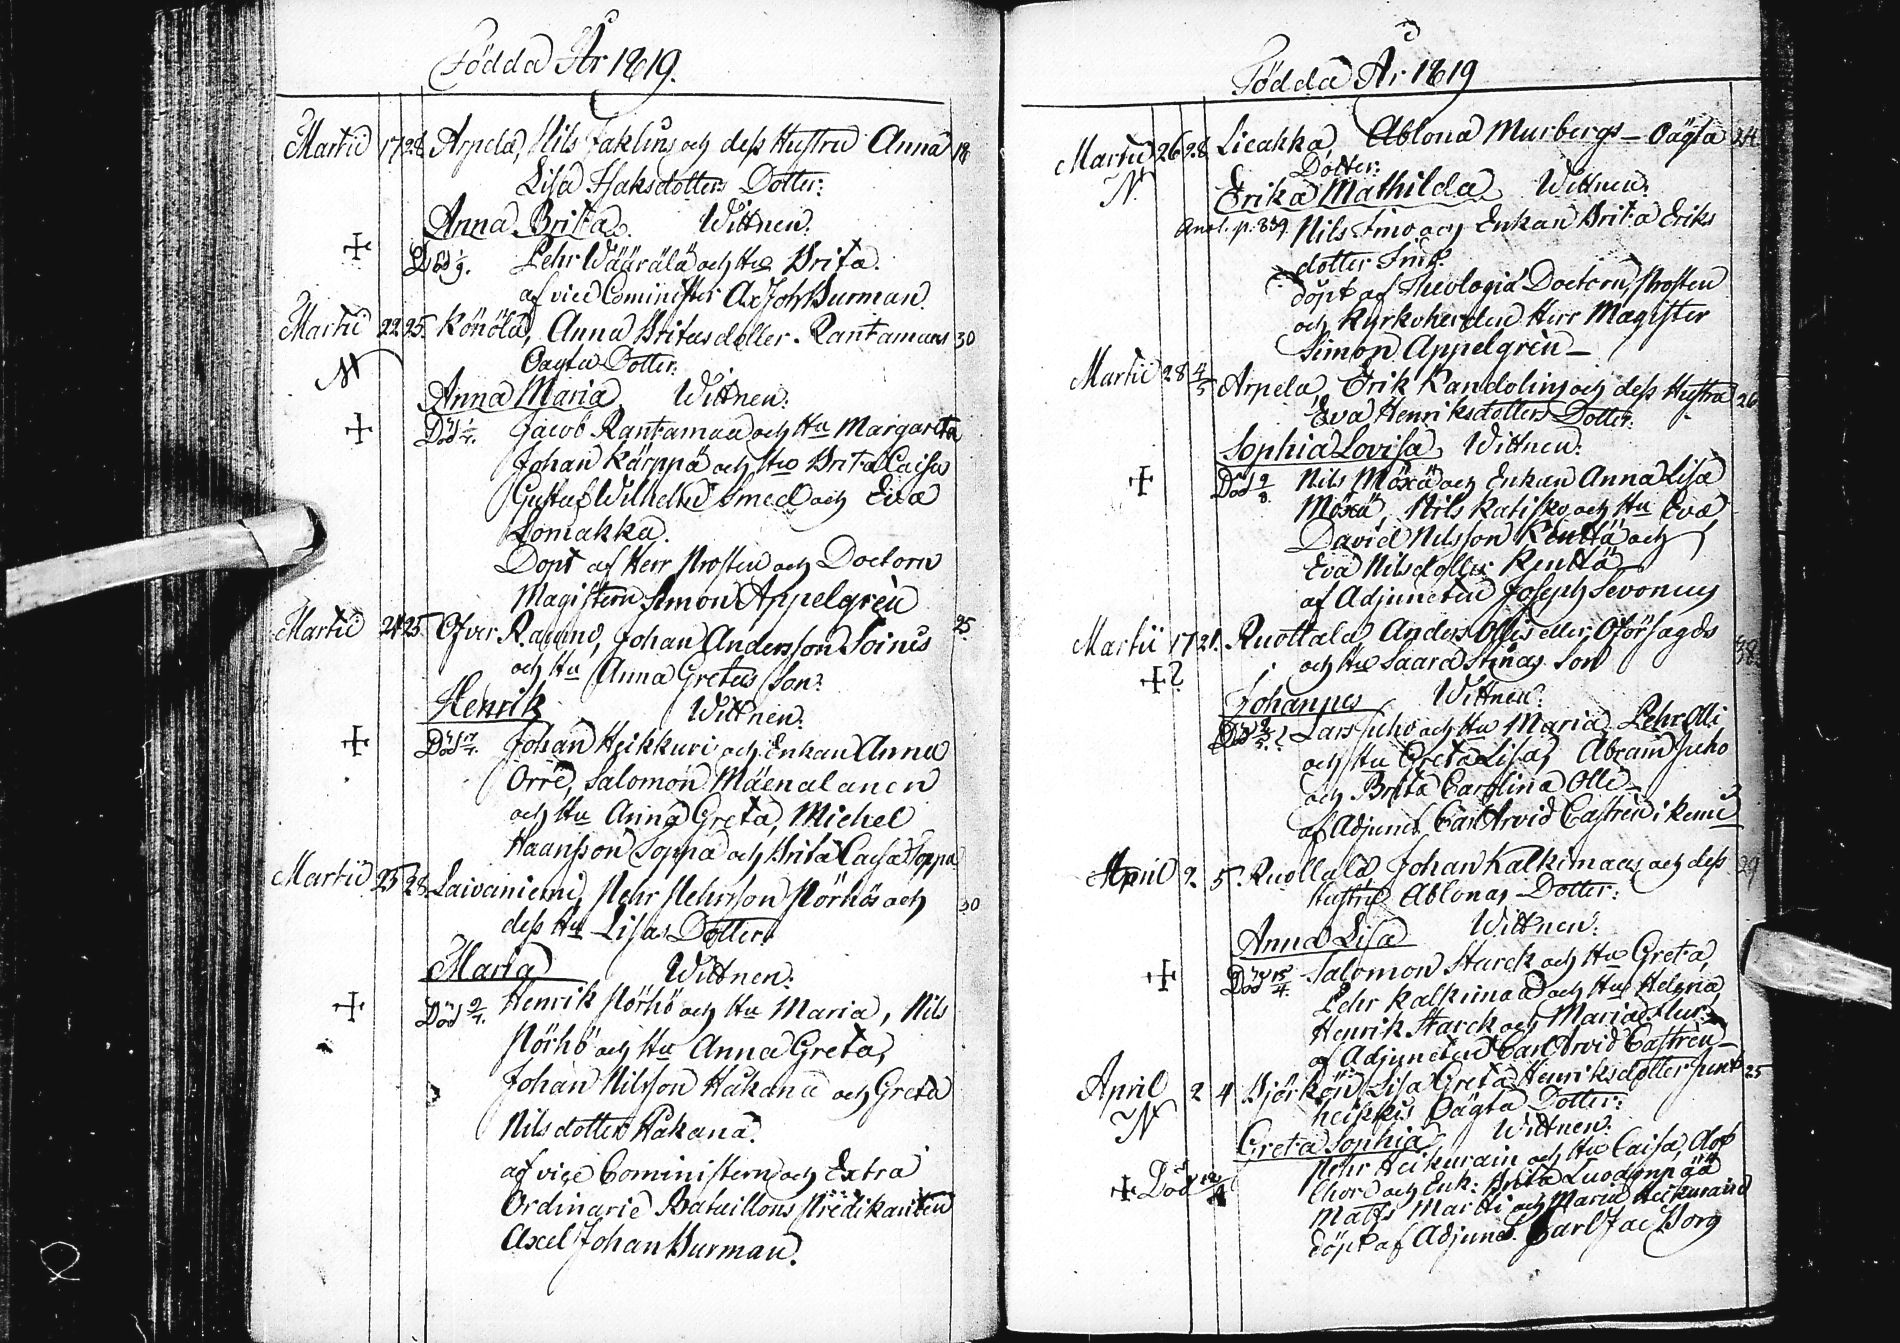 Födda År 1819.
Martii 17 28. Arpela, Nils Jaklins och dess Hustru Anna 18
Lisa Isaksdotters Dotter:
Anna Brita. Wittnen:
Död Pehr Wäärälä och Hu Brita.
af vice Cominister Ax Joh Burman.
Martii 22 25. Könölä, Anna Britas dotter Rantamaas 30
Oägta Dotter.
N
Anna Maria Wittnen:
Död Jacob Rantamaa och Hu Margareta
Johan Kärppä och Hu Brita Caisa
Gustaf Wilhelm Smed och Eva
Lomakka.
Döpt af Herr Prosten och Doctorn
Magistern Simon Appelgrén
Martii 24 25. Öfver Raumo, Johan Andersson Soinis 25
och Hu Anna Gretas Son:
Henrik Wittnen:
Död Johan Heikkuri och Enkan Anna
Orre, Salomon Mäenalanen
och Hu Anna Greta, Michel
Haansson Soppa och Brita Caisa Soppa
Martii 25 28. Laivaniemi, Pehr Pehrsson Pörhös och 30
dess Hu Lisas Dotter.
Maria Wittnen:
Död 9/4. Henrik Pörhö och Hu Maria, Nils
Pörhö och Hu Anna Greta,
Johan Nilsson Hakana och Greta
Nilsdotter Hakana.
af vice Cominstern och Extra
Ordinarie Bataillons Predikanten
Axel Johan Burman.
Födda År 1819
Martii 26 28. Licakka, Ablona Murbergs Oägta 24
Dotter:
N.
Erika Mathilda Wittnen:
Anot. p. 839 Nils Fino och Enkan Brita Eriks
dotter Fino.
döpt af Theologiæ Doctorn, Prosten
och Kyrkoherden Herr Magister
Simon Appelgrén
Martii 28 4/5 Arpela, Erik Kandolins och dess Hustru 26
Eva Henriksdotters Dotter.
Sophia Lovisa Wittnen:
Död Nils Möxä och Enkan Anna Lisa
Möxä, Nils Katisko och Hu Eva
David Nilsson Kenttä och
Eva Nilsdotter Kenttä
af Adjuncten Joseph Sevonius
Martii 17 21. Ruottala, Anders Ollis eller Oförsagds 38
och Hu Saara Stinas Son
?
Johannes Wittnen:
Död Lars Juho och Hu Maria, Pehr Olli
och Hu Greta Lisa, Abram Juho
och Brita Carolina Olli
af Adjunct Carl Arvid Castrén i Kemi
April 2. 5. Ruottala, Johan Kalkimaas och dess 29
Hustru Ablonas Dotter:
Anna Lisa Wittnen:
Död 15/4. Salomon Starck och Hu Greta,
Pehr Kalkimaa och Hu Helena,
Henrik Starck och Maria
af Adjuncten Carl Arvid Castrén
April 2 4 Björkön, Lisa Greta Henriksdotter Junt 25
heikkis Oägta Dotter:
N
Greta Sophia Wittnen:
Pehr Heikurain och Hu Caisa, Olof
Död och Enk: Brita Luodonpää
Matts Martti och Maria Heikurain
döpt af Adjunct. Carl Jac Borg